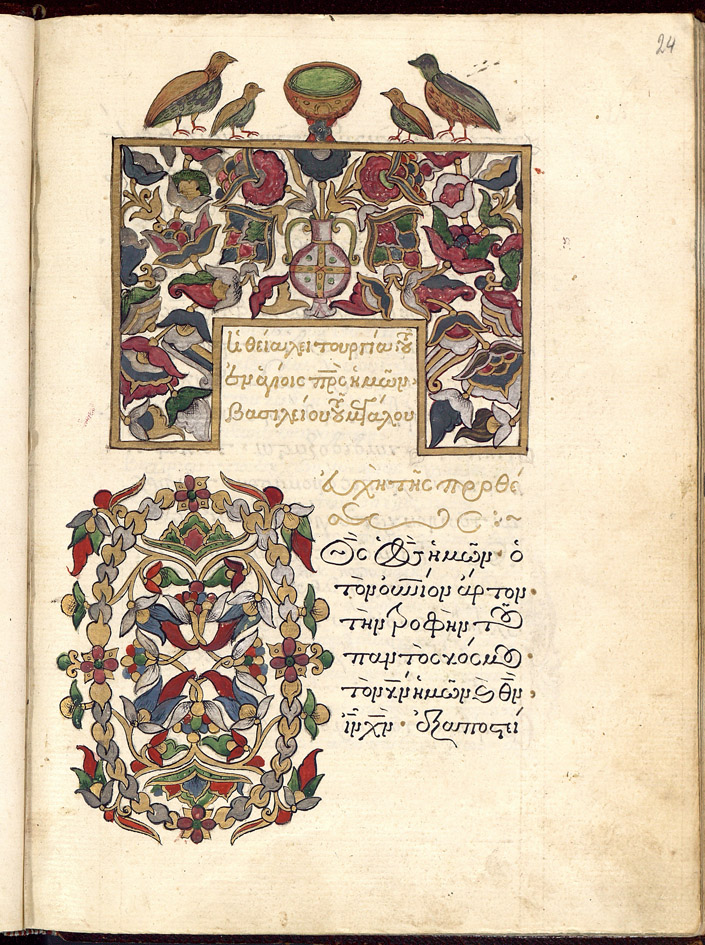 24
Ἡ θεία λειτουργία τοῦ
ἐν ἁγίοις πρ̅ς ἡμῶν
Βασιλείου τοῦ μεγάλου
ἀρχὴ τῆς προθέ
σεως
Ὁ Θς̅ ὁ Θς̅ ἡμῶν ὁ
τὸν οὐ̅νιον ἄρτον
τὴν τροφὴν τοῦ
παντὸς κόσμου
τὸν κν̅ ἡμῶν ϗ θν̅
ἰν̅ χν̅ ἐξαποστεί